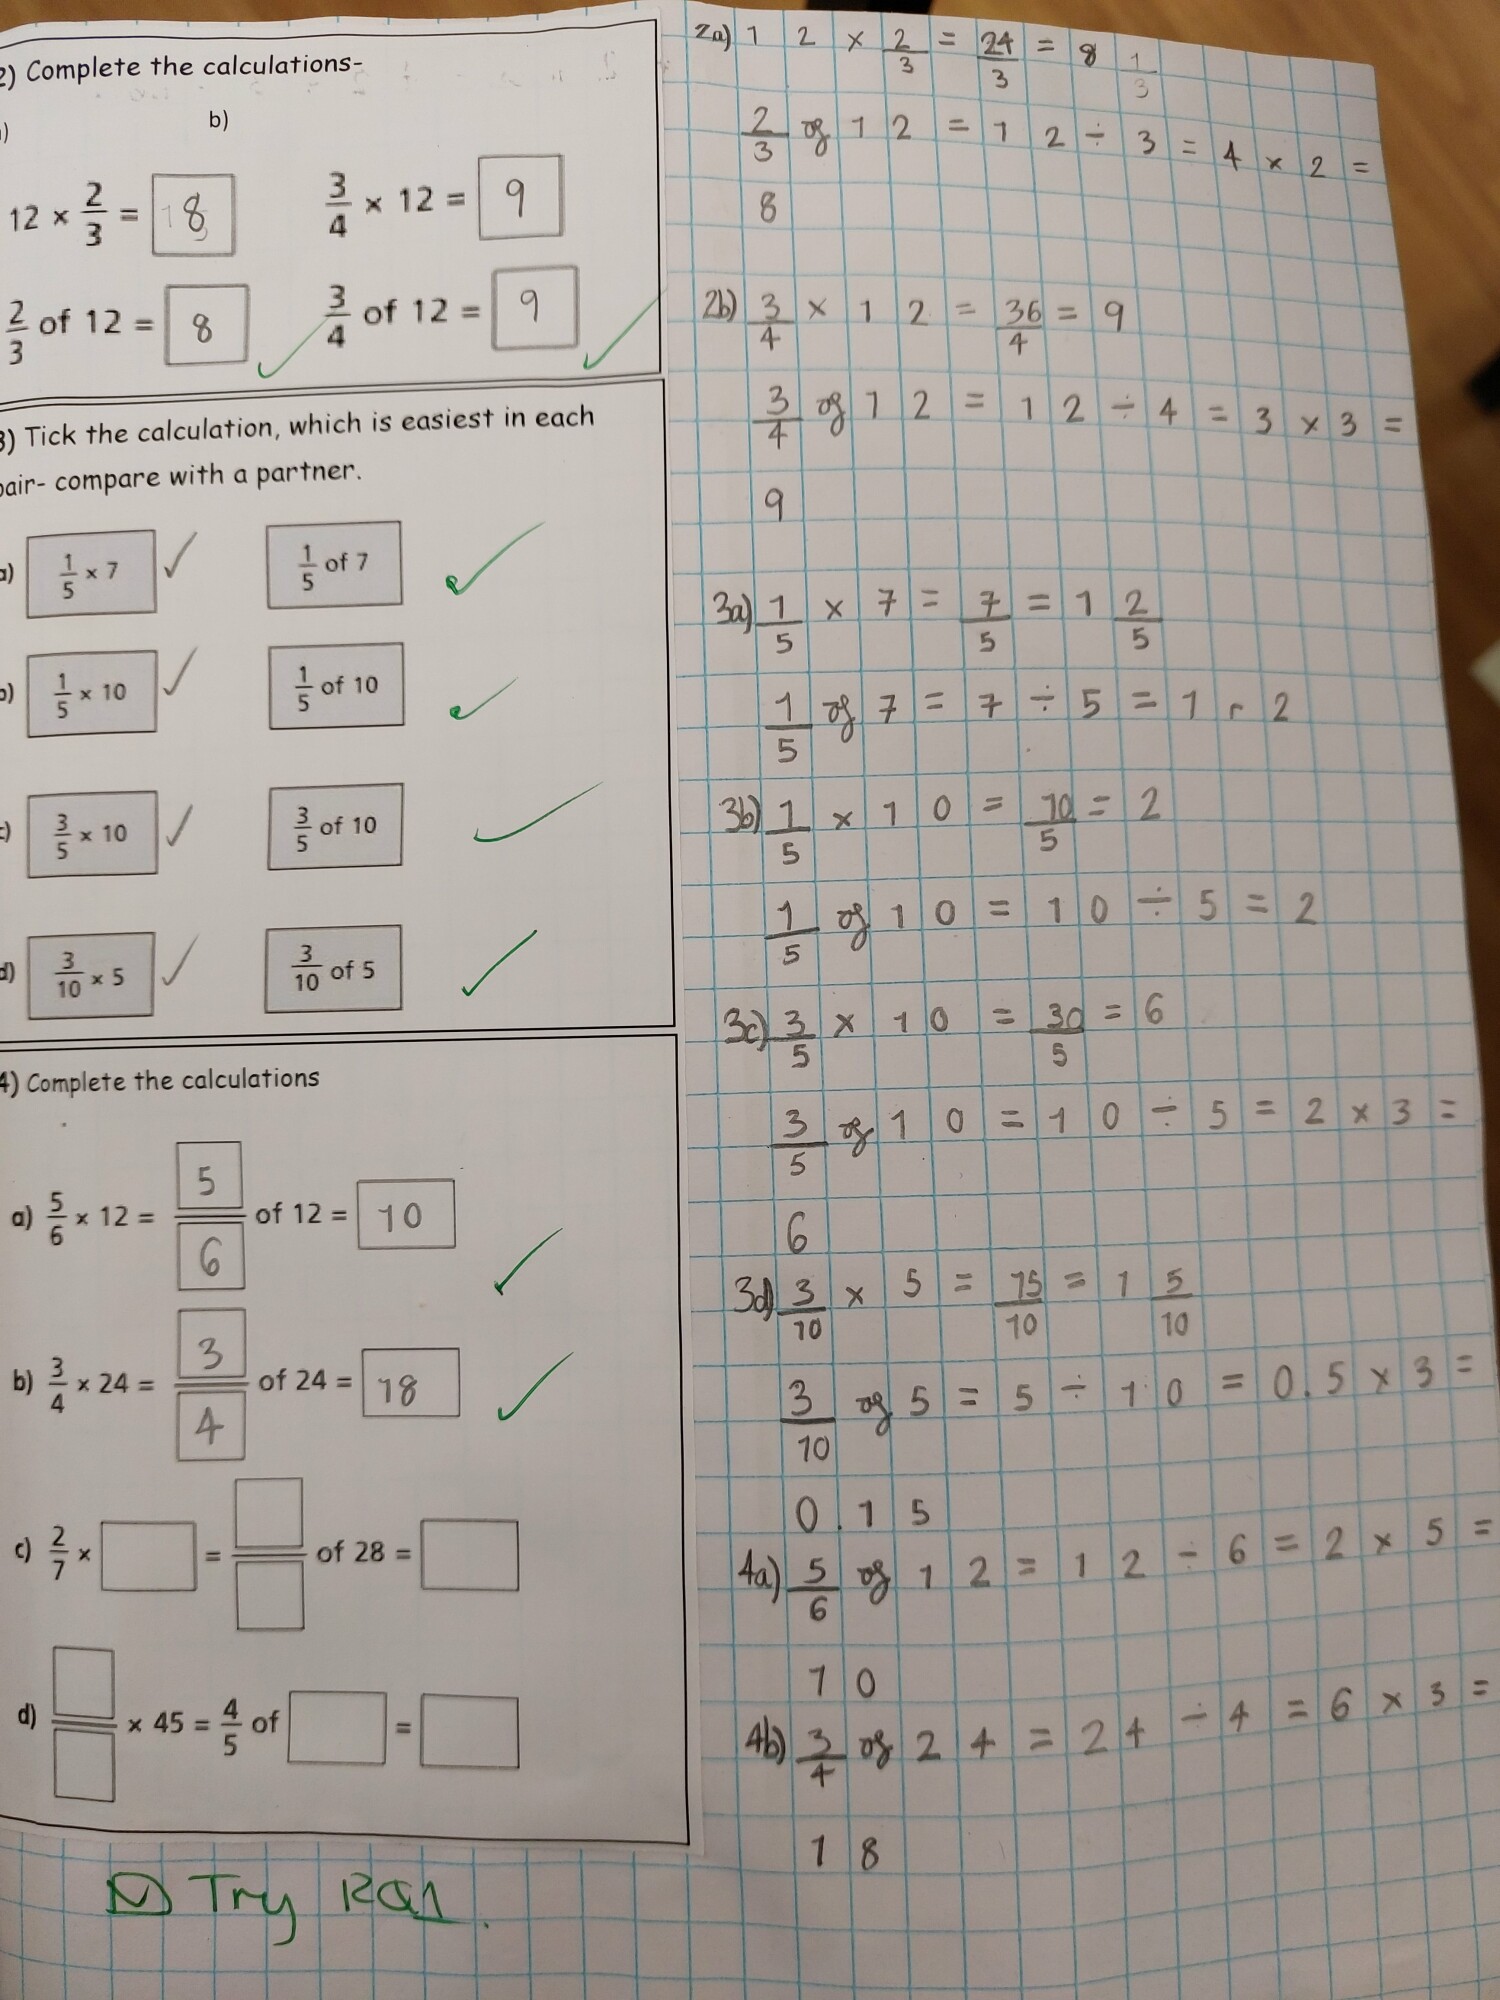 2) Complete the calculations-
a) b)
12 × 2/3 = 8 3/4 × 12 = 9
2/3 of 12 = 8 3/4 of 12 = 9
3) Tick the calculation, which is easiest in each
pair- compare with a partner.
a) 1/5 × 7 ✓ 1/5 of 7 ✓
b) 1/5 × 10 ✓ 1/5 of 10 ✓
c) 3/5 × 10 ✓ 3/5 of 10 ✓
d) 3/10 × 5 ✓ 3/10 of 5 ✓
4) Complete the calculations
a) 5/6 × 12 = 5/6 of 12 = 10 ✓
b) 3/4 × 24 = 3/4 of 24 = 18 ✓
c) 2/7 × = of 28 =
d) × 45 = 4/5 of =
Try RQ1.
2a) 12 × 2/3 = 24/3 = 8 1/3
2/3 of 12 = 12 ÷ 3 = 4 × 2 =
8
2b) 3/4 × 12 = 36/4 = 9
3/4 of 12 = 12 ÷ 4 = 3 × 3 =
9
3a) 1/5 × 7 = 7/5 = 1 2/5
1/5 of 7 = 7 ÷ 5 = 1 r 2
3b) 1/5 × 10 = 10/5 = 2
1/5 of 10 = 10 ÷ 5 = 2
3c) 3/5 × 10 = 30/5 = 6
3/5 of 10 = 10 ÷ 5 = 2 × 3 =
6
3d) 3/10 × 5 = 15/10 = 1 5/10
3/10 of 5 = 5 ÷ 10 = 0.5 × 3 =
0.15
4a) 5/6 of 12 = 12 ÷ 6 = 2 × 5 =
10
4b) 3/4 of 24 = 24 ÷ 4 = 6 × 3 =
18